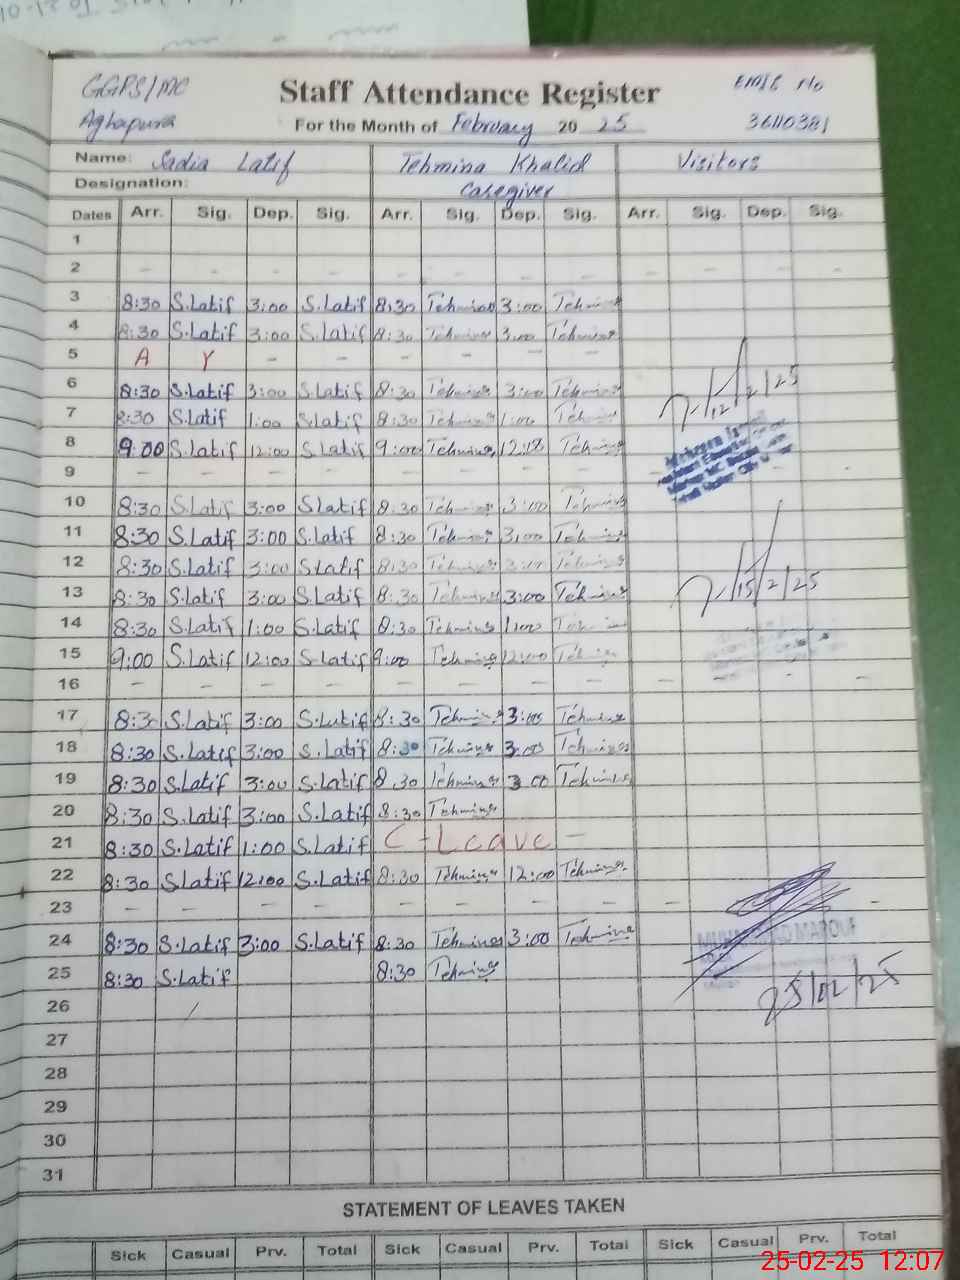 GGPS/MC Staff Attendance Register EMIS No
Aghapura For the Month of February 20 25 36110381
Name: Sadia Latif Tehmina Khalid Visitors
Designation: Caregiver
Dates Arr. Sig. Dep. Sig. Arr. Sig. Dep. Sig. Arr. Sig. Dep. Sig.
1
2 - - - - - - - - - - - -
3 8:30 S.Latif 3:00 S.Latif 8:30 Tehmina 3:00 Tehmina
4 8:30 S.Latif 3:00 S.Latif 8:30 Tehmina 3:00 Tehmina
5 A Y - - - - - -
6 8:30 S.Latif 3:00 S.Latif 8:30 Tehmina 3:00 Tehmina
7 8:30 S.Latif 1:00 S.Latif 8:30 Tehmina 1:00 Tehmina
8 9:00 S.Latif 12:00 S.Latif 9:00 Tehmina 12:00 Tehmina
9 - - - - - - - - - - -
10 8:30 S.Latif 3:00 S.Latif 8:30 Tehmina 3:00 Tehmina
11 8:30 S.Latif 3:00 S.Latif 8:30 Tehmina 3:00 Tehmina
12 8:30 S.Latif 3:00 S.Latif 8:30 Tehmina 3:00 Tehmina
13 8:30 S.Latif 3:00 S.Latif 8:30 Tehmina 3:00 Tehmina 15/2/25
14 8:30 S.Latif 1:00 S.Latif 8:30 Tehmina 1:00 Tehmina
15 9:00 S.Latif 12:00 S.Latif 9:00 Tehmina 12:00 Tehmina
16 - - - - - - - - - - - -
17 8:30 S.Latif 3:00 S.Latif 8:30 Tehmina 3:00 Tehmina
18 8:30 S.Latif 3:00 S.Latif 8:30 Tehmina 3:00 Tehmina
19 8:30 S.Latif 3:00 S.Latif 8:30 Tehmina 3:00 Tehmina
20 8:30 S.Latif 3:00 S.Latif 8:30 Tehmina
21 8:30 S.Latif 1:00 S.Latif C-Leave -
22 8:30 S.Latif 12:00 S.Latif 8:30 Tehmina 12:00 Tehmina
23 - - - - - - - - - - - -
24 8:30 S.Latif 3:00 S.Latif 8:30 Tehmina 3:00 Tehmina
25 8:30 S.Latif 8:30 Tehmina
26 25/02/25
27
28
29
30
31
STATEMENT OF LEAVES TAKEN
Sick Casual Prv. Total Sick Casual Prv. Total Sick Casual Prv. Total
25-02-25 12:07